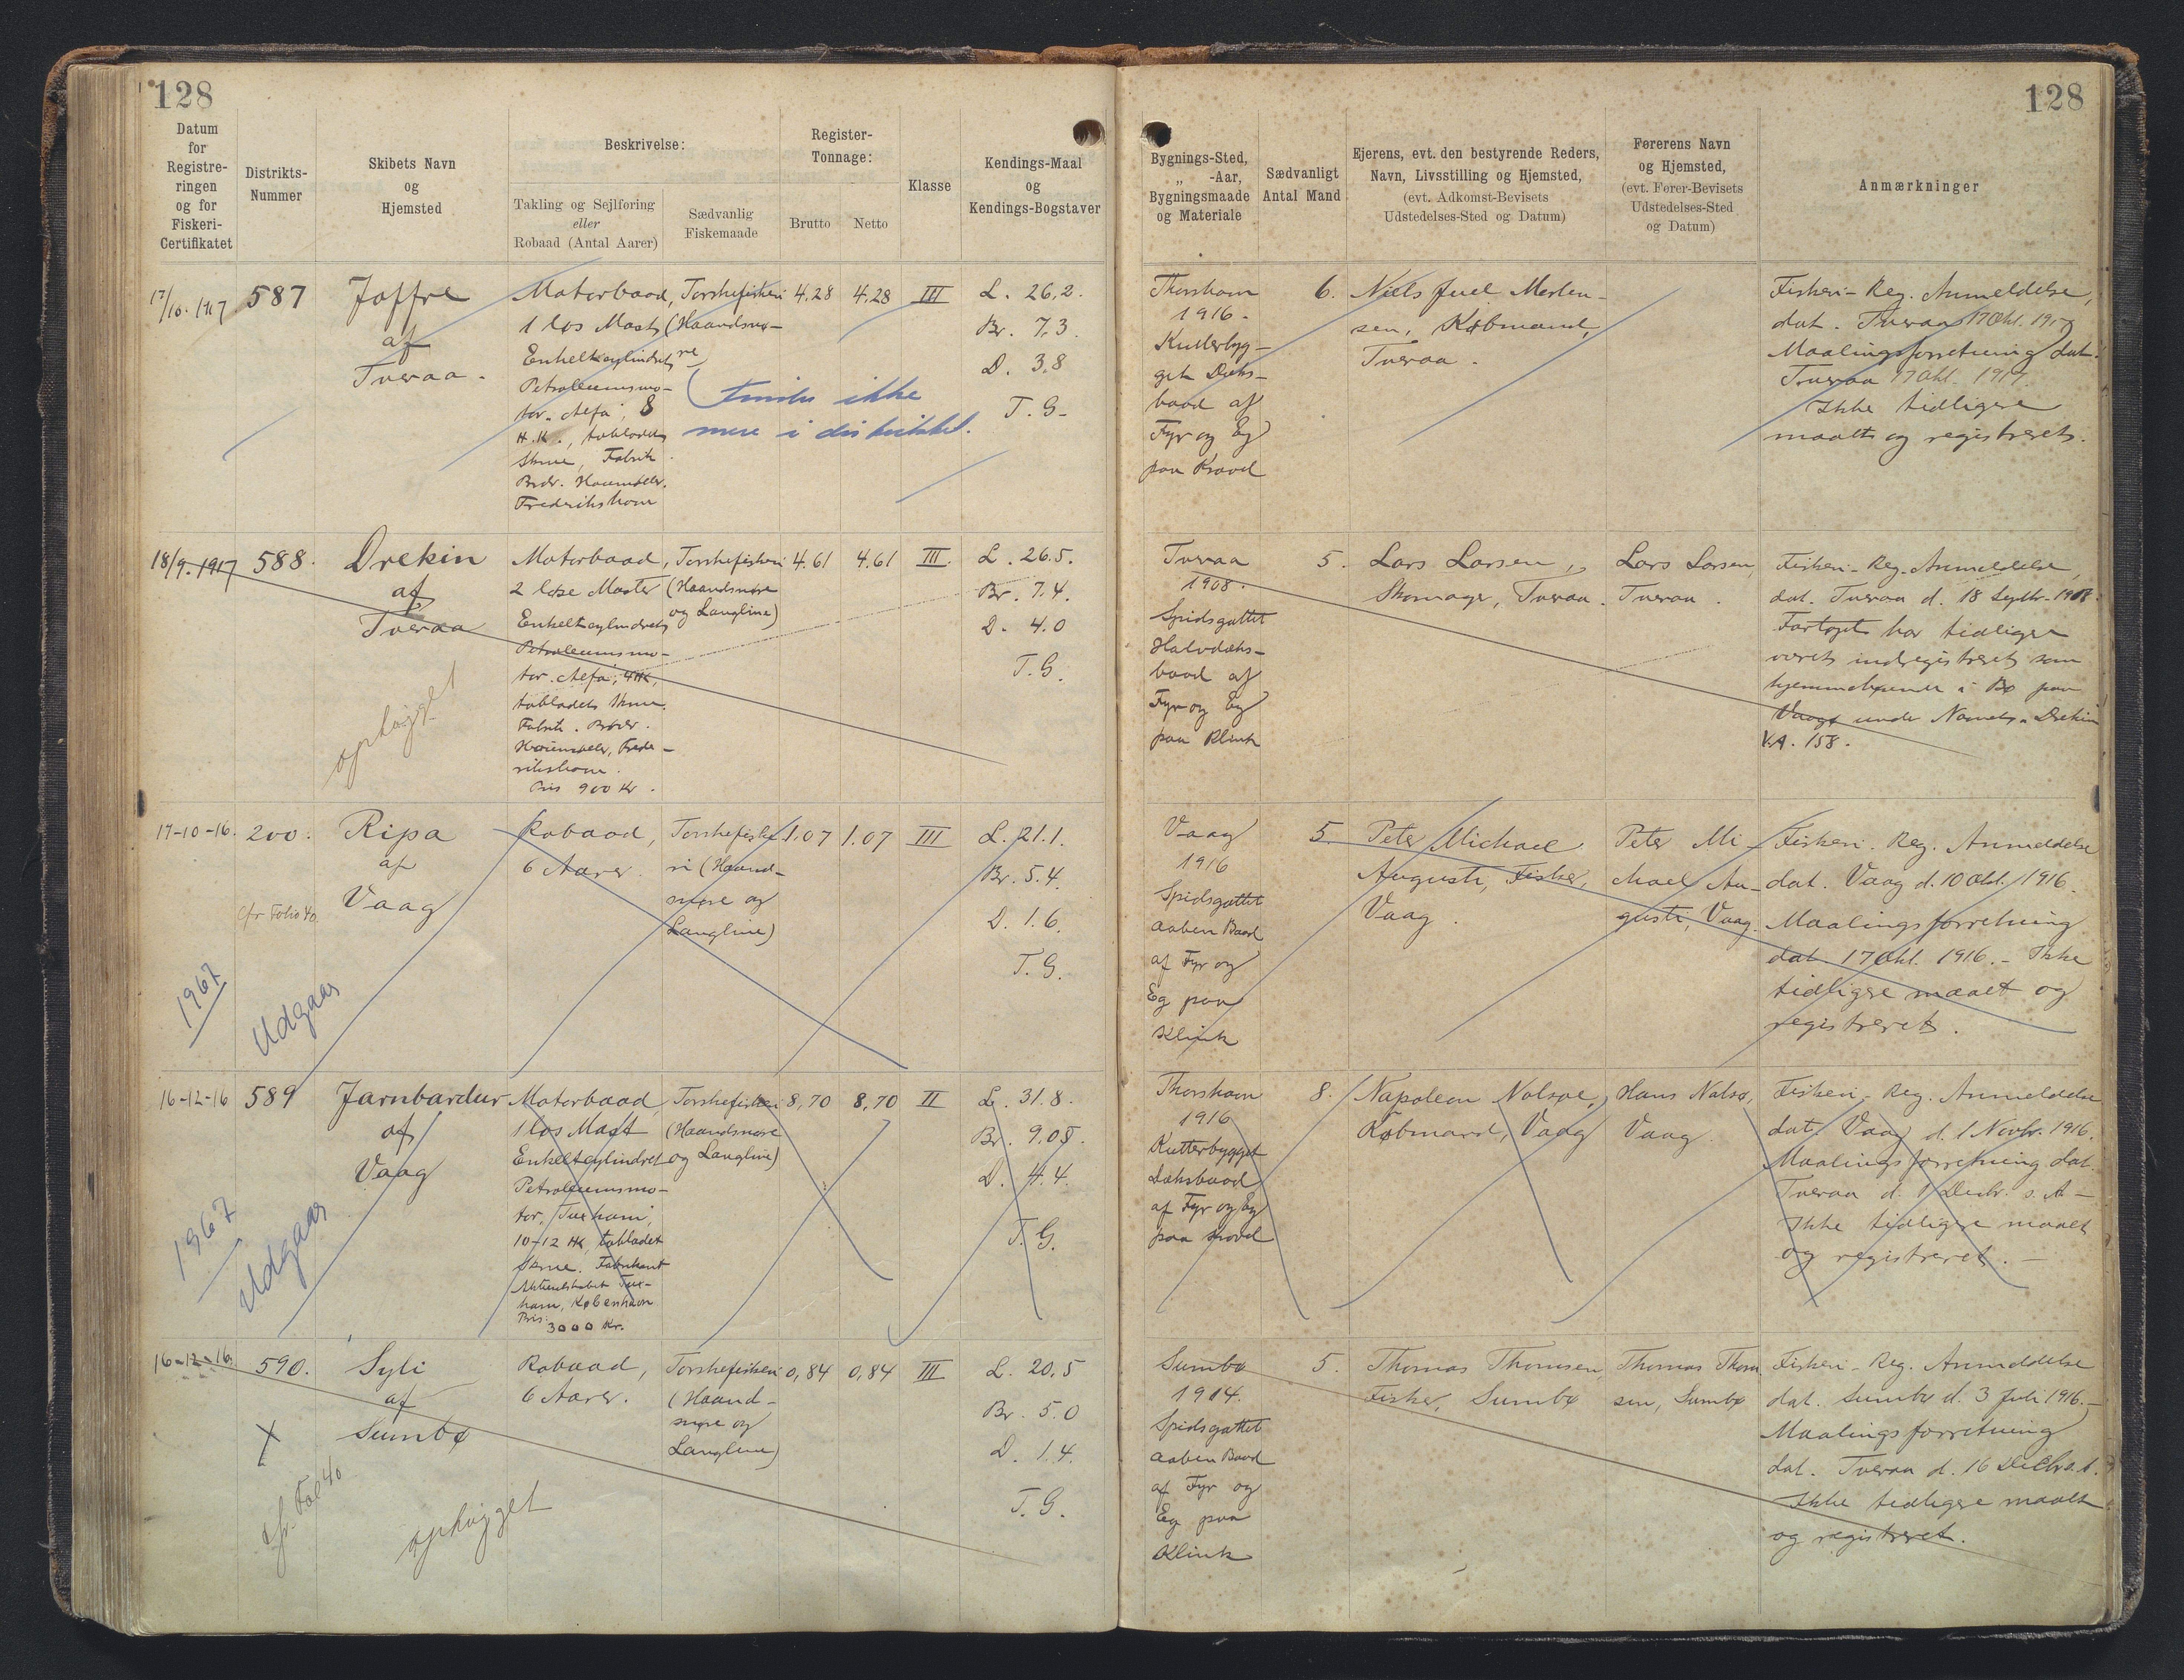 128
128
Datum
for
Registre-
ringen
og for
Fiskeri-
Certifikatet
Distrikts-
Nummer
Skibets Navn
og
Hjemsted
Beskrivelse:
Takling og Sejlføring
eller
Robaad (Antal Aarer)
Sædvanlig
Fiskemaade
Register-
Tonnage:
Brutto
Netto
Klasse
Kendings-Maal
og
Kendings-Bogstaver
Bygnings-Sted,
„ -Aar,
Bygningsmaade
og Materiale
Sædvanligt
Antal Mand
Ejerens, evt. den bestyrende Reders,
Navn, Livsstilling og Hjemsted,
(evt. Adkomst-Bevisets
Udstedelses-Sted og Datum)
Førerens Navn
og Hjemsted,
(evt. Fører-Bevisets
Udstedelses-Sted
og Datum)
Anmærkninger
17/10. 1917
587
Joffre
af
Tveraa.
Motorbaad,
1 løs Mast
Enkeltcylindret
Petroleumsmo-
tor „Alfa", 8
H.K., tobladet
Skrue, Fabrik
Brdr. Houmøller,
Frederikshavn
Torskefiskeri
(Haandsnø-
re)
Findes ikke
mere i distriktet.
4,28
4,28
III
L. 26,2.
Br. 7,3.
D. 3,8
T. G.
Thorshavn
1916.
Kutterbyg-
get Dæks-
baad af
Fyr og Eg
paa Kravel
6.
Niels Juel Morten-
sen, Købmand,
Tveraa.
Fiskeri-Reg. Anmeldelse,
dat. Tveraa 17 Okt. 1917
Maalingsforretning dat.
Tveraa 17 Okt. 1917.
Ikke tidligere
maalt og registreret.
18/9. 1917
588.
Drekin
af
Tveraa
ophugget
Motorbaad,
2 løse Master
Enkeltcylindret
Petroleumsmo-
tor „Alfa", 4 HK,
tobladet Skrue.
Fabrik. Brødr.
Houmøller, Frede-
rikshavn.
Pris 900 Kr.
Torskefiskeri
(Haandsnøre
og Langline)
4.61
4.61
III.
L. 26.5.
Br. 7.4.
D. 4.0
T. G.
Tveraa
1908.
Spidsgattet
Halvdæks-
baad af
Fyr og Eg
paa Klink
5.
Lars Larsen,
Skomager, Tveraa.
Lars Larsen,
Tveraa.
Fiskeri-Reg. Anmeldelse,
dat. Tveraa d. 18 Septbr. 1917.
Fartøjet har tidligere
været indregistreret som
hjemmehørende i Bø paa
Vaagø under Navnet „Drekin"
V.A. 158.
17-10-16.
200.
cfr Folio 40
Ripa
af
Vaag
1967
Udgaar
Robaad,
6 Aarer.
Torskefiske-
ri (Haand-
snøre og
Langline)
1.07
1.07
III
L. 21.1.
Br. 5.4.
D. 1.6.
T. G.
Vaag
1916
Spidsgattet
aaben Baad
af Fyr og
Eg paa
Klink
5
Peter Michael
Augusti, Fisker,
Vaag.
Peter Mi-
chael Au-
gusti, Vaag.
Fiskeri-Reg. Anmeldelse
dat. Vaag d. 10 Okt. 1916.
Maalingsforretning
dat. 17 Okt. 1916. - Ikke
tidligere maalt og
registreret.
16-12-16
589
Jarnbardur
af
Vaag
1967
Udgaar
Motorbaad
1 løs Mast
Enkeltcylindret
Petroleumsmo-
tor, „Tuxham",
10-12 HK, tobladet
Skrue. Fabrikant
Aktieselskabet Tux-
ham, København
Pris:
3000 Kr.
Torskefiskeri
(Haandsnøre
og Langline)
8,70
8,70
II
L. 31.8.
Br. 9.05.
D. 4.4.
T. G.
Thorshavn
1916
Kutterbygget
Dæksbaad
af Fyr og Eg
paa Kravel
8.
Napoleon Nolsøe,
Købmand, Vaag
Hans Nolsø,
Vaag.
Fiskeri-Reg. Anmeldelse
dat. Vaag d. 1 Novbr. 1916.
Maalingsforretning dat.
Tveraa d. 1 Decbr. s. A -
Ikke tidligere maalt
og registreret. -
16-12-16.
590.
Syli
af
Sumbø
X
cfr. Fol 40
ophugget
Robaad,
6 Aarer.
Torskefiskeri
(Haand-
snøre og
Langline)
0,84
0,84
III
L. 20.5
Br. 5.0
D. 1.4.
T. G.
Sumbø
1914.
Spidsgattet
aaben Baad
af Fyr og
Eg paa
Klink
5.
Thomas Thomsen,
Fisker, Sumbø
Thomas Thom-
sen, Sumbø
Fiskeri-Reg. Anmeldelse
dat. Sumbø d. 3 Juli 1916.-
Maalingsforretning
dat. Tveraa d. 16 Decbr. s. A.
Ikke tidligere maalt
og registreret.